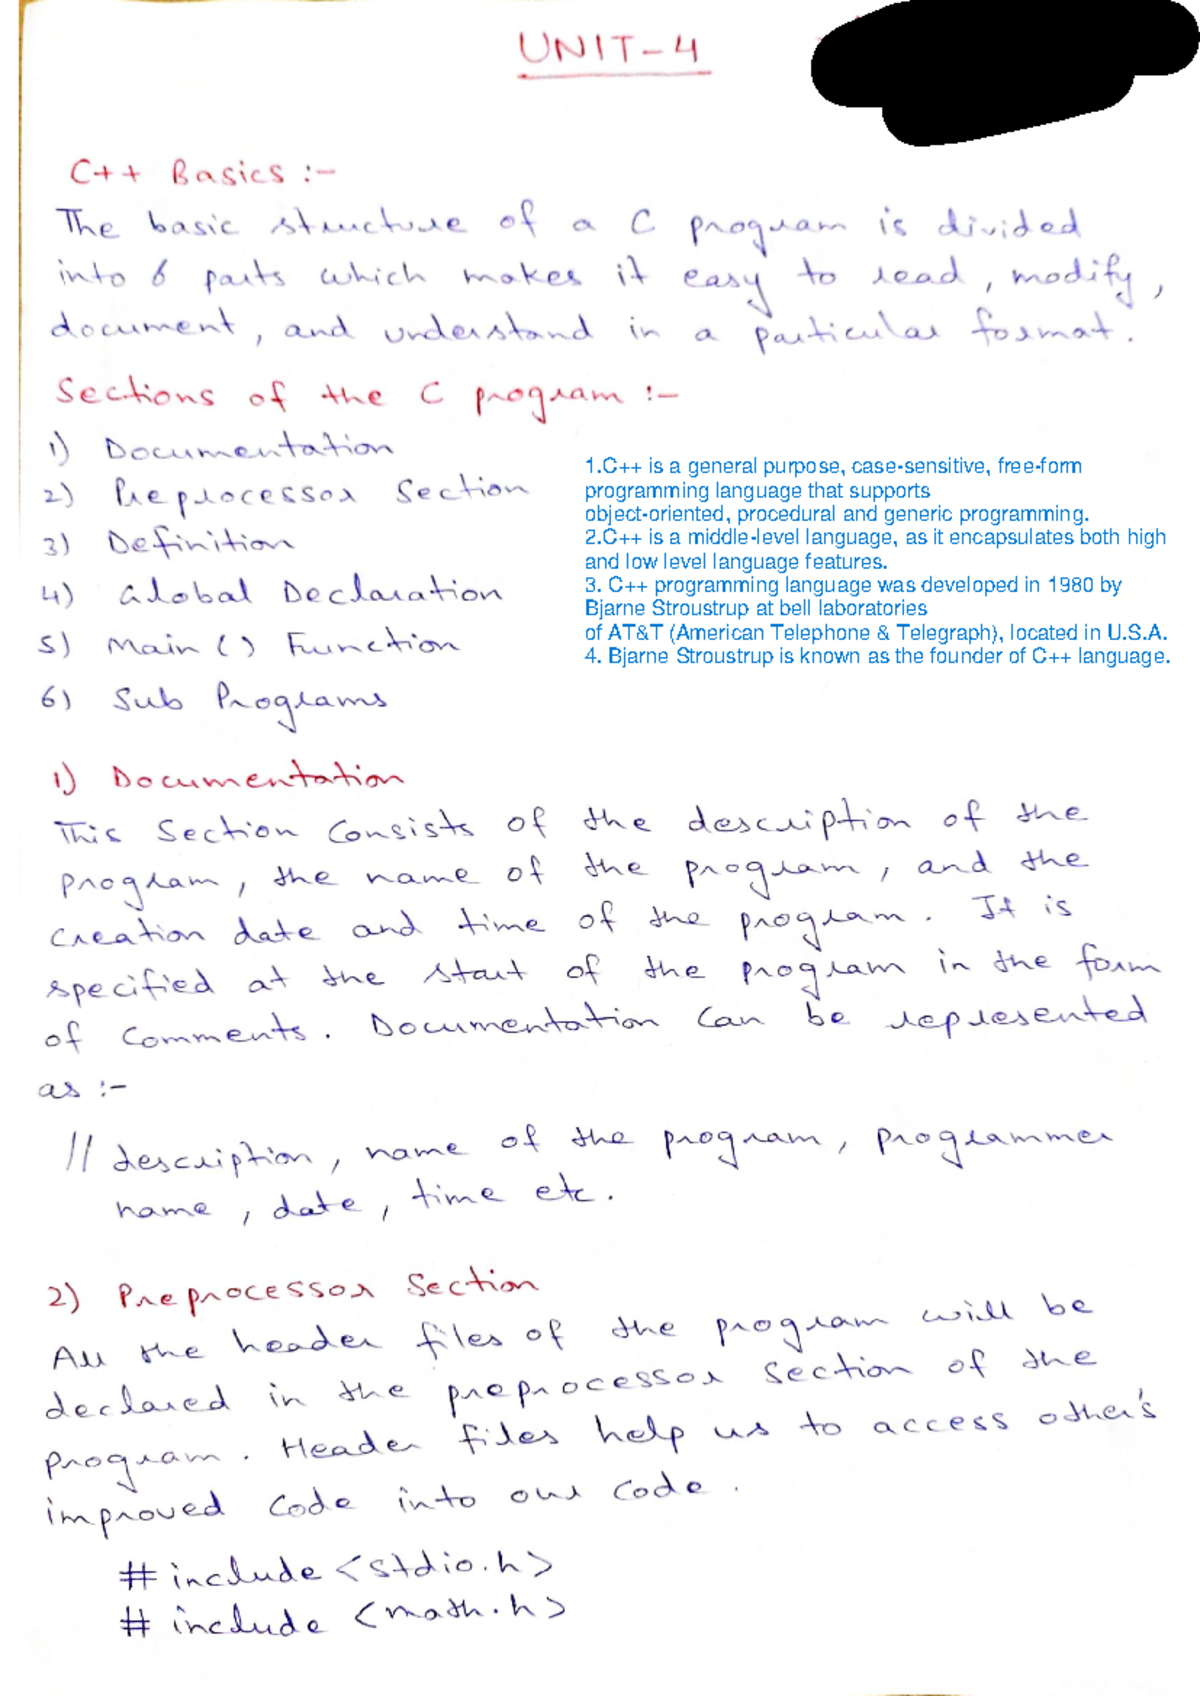 UNIT-4
C++ Basics :-
The basic structure of a C program is divided
into 6 parts which makes it easy to read, modify,
document, and understand in a particular format.
Sections of the C program :-
1) Documentation
2) Preprocessor Section
3) Definition
4) Global Declaration
5) Main () Function
6) Sub Programs
1.C++ is a general purpose, case-sensitive, free-form
programming language that supports
object-oriented, procedural and generic programming.
2.C++ is a middle-level language, as it encapsulates both high
and low level language features.
3. C++ programming language was developed in 1980 by
Bjarne Stroustrup at bell laboratories
of AT&T (American Telephone & Telegraph), located in U.S.A.
4. Bjarne Stroustrup is known as the founder of C++ language.
1) Documentation
This Section Consists of the description of the
program, the name of the program, and the
creation date and time of the program. It is
specified at the start of the program in the form
of Comments. Documentation Can be represented
as :-
// description, name of the program, programmer
name, date, time etc.
2) Preprocessor Section
All the header files of the program will be
declared in the preprocessor Section of the
program. Header files help us to access other's
improved Code into our Code.
# include <stdio.h>
# include <math.h>